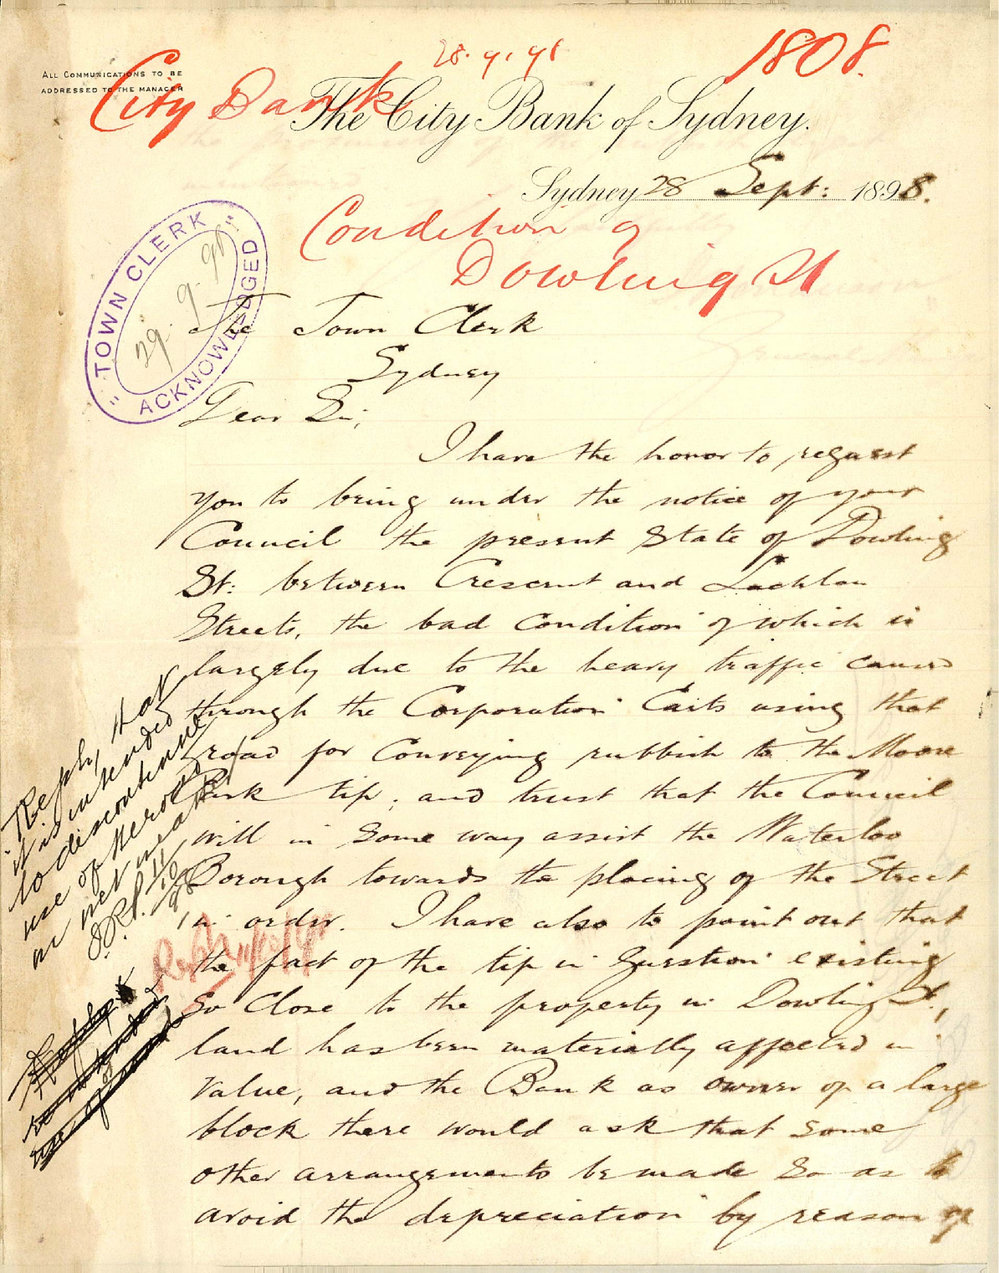 28.9.98
1808.
ALL COMMUNICATIONS TO BE
ADDRESSED TO THE MANAGER
City Bank
The City Bank of Sydney.
Sydney 28 Sept: 1898.
Condition of
Dowling St
"TOWN CLERK"
29.9.98
ACKNOWLEDGED
The Town Clerk
Sydney
Dear Sir,
I have the honor to request
you to bring under the notice of your
Council the present State of Dowling
St: between Crescent and Lachlan
Streets, the bad condition of which is
largely due to the heavy traffic caused
through the Corporation Carts using that
road for conveying rubbish to the Moore
Park tip; and trust that the Council
will in some way assist the Waterloo
Borough towards the placing of the Street
in order. I have also to point out that
the fact of the tip in question existing
so close to the property in Dowling St,
land has been materially affected in
value, and the Bank as owner of a large
block there would ask that some
other arrangements be made so as to
avoid the depreciation by reason of
Reply that
it is intended
to discontinue
use of the road
in wet weather
11/10/98